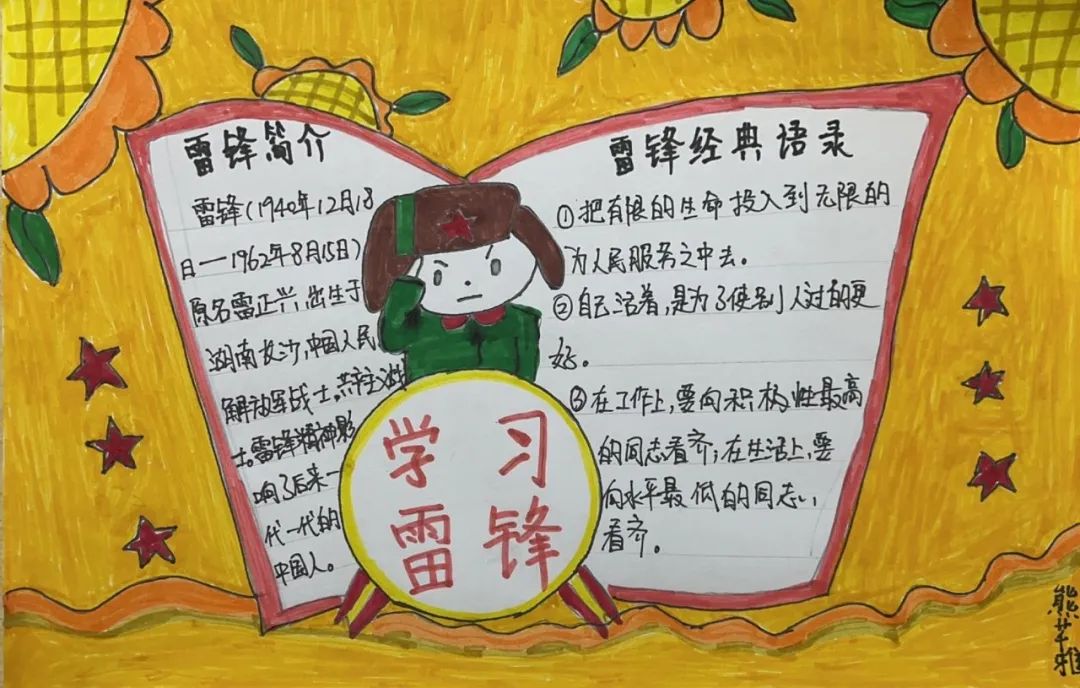 雷锋简介
雷锋(1940年12月18
日—1962年8月15日)
原名雷正兴,出生于
湖南长沙,中国人民
解放军战士,共产主义战
士。雷锋精神影
响了后来一
代一代的
中国人。
雷锋经典语录
①把有限的生命投入到无限的
为人民服务之中去。
②自己活着,是为了使别人过的更
好。
③在工作上,要向积极性最高
的同志看齐,在生活上,要
向水平最低的同志
看齐。
学习
雷锋
熊芊雅